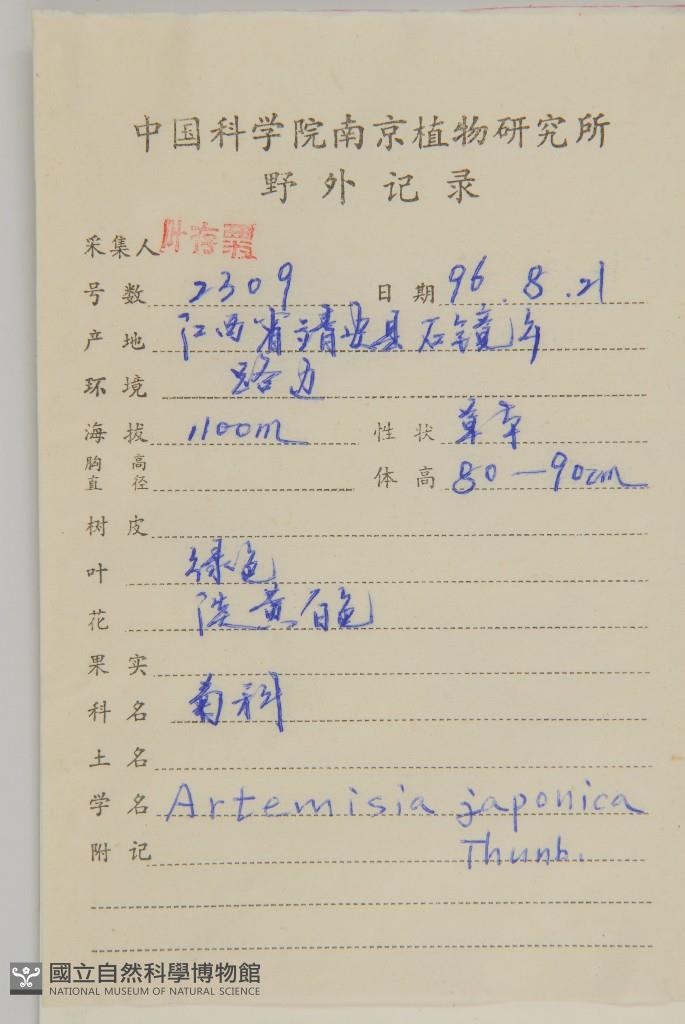 中国科学院南京植物研究所
野外记录
采集人 叶存粟
号数 2309 日期 96.8.21
产地 江西省靖安县石镜
环境 路边
海拔 1100m 性状 草本
胸高直径 体高 80—90cm
树皮
叶 绿色
花 淡黄白色
果实
科名 菊科
土名
学名 Artemisia japonica
Thunb.
附记
國立自然科學博物館
NATIONAL MUSEUM OF NATURAL SCIENCE